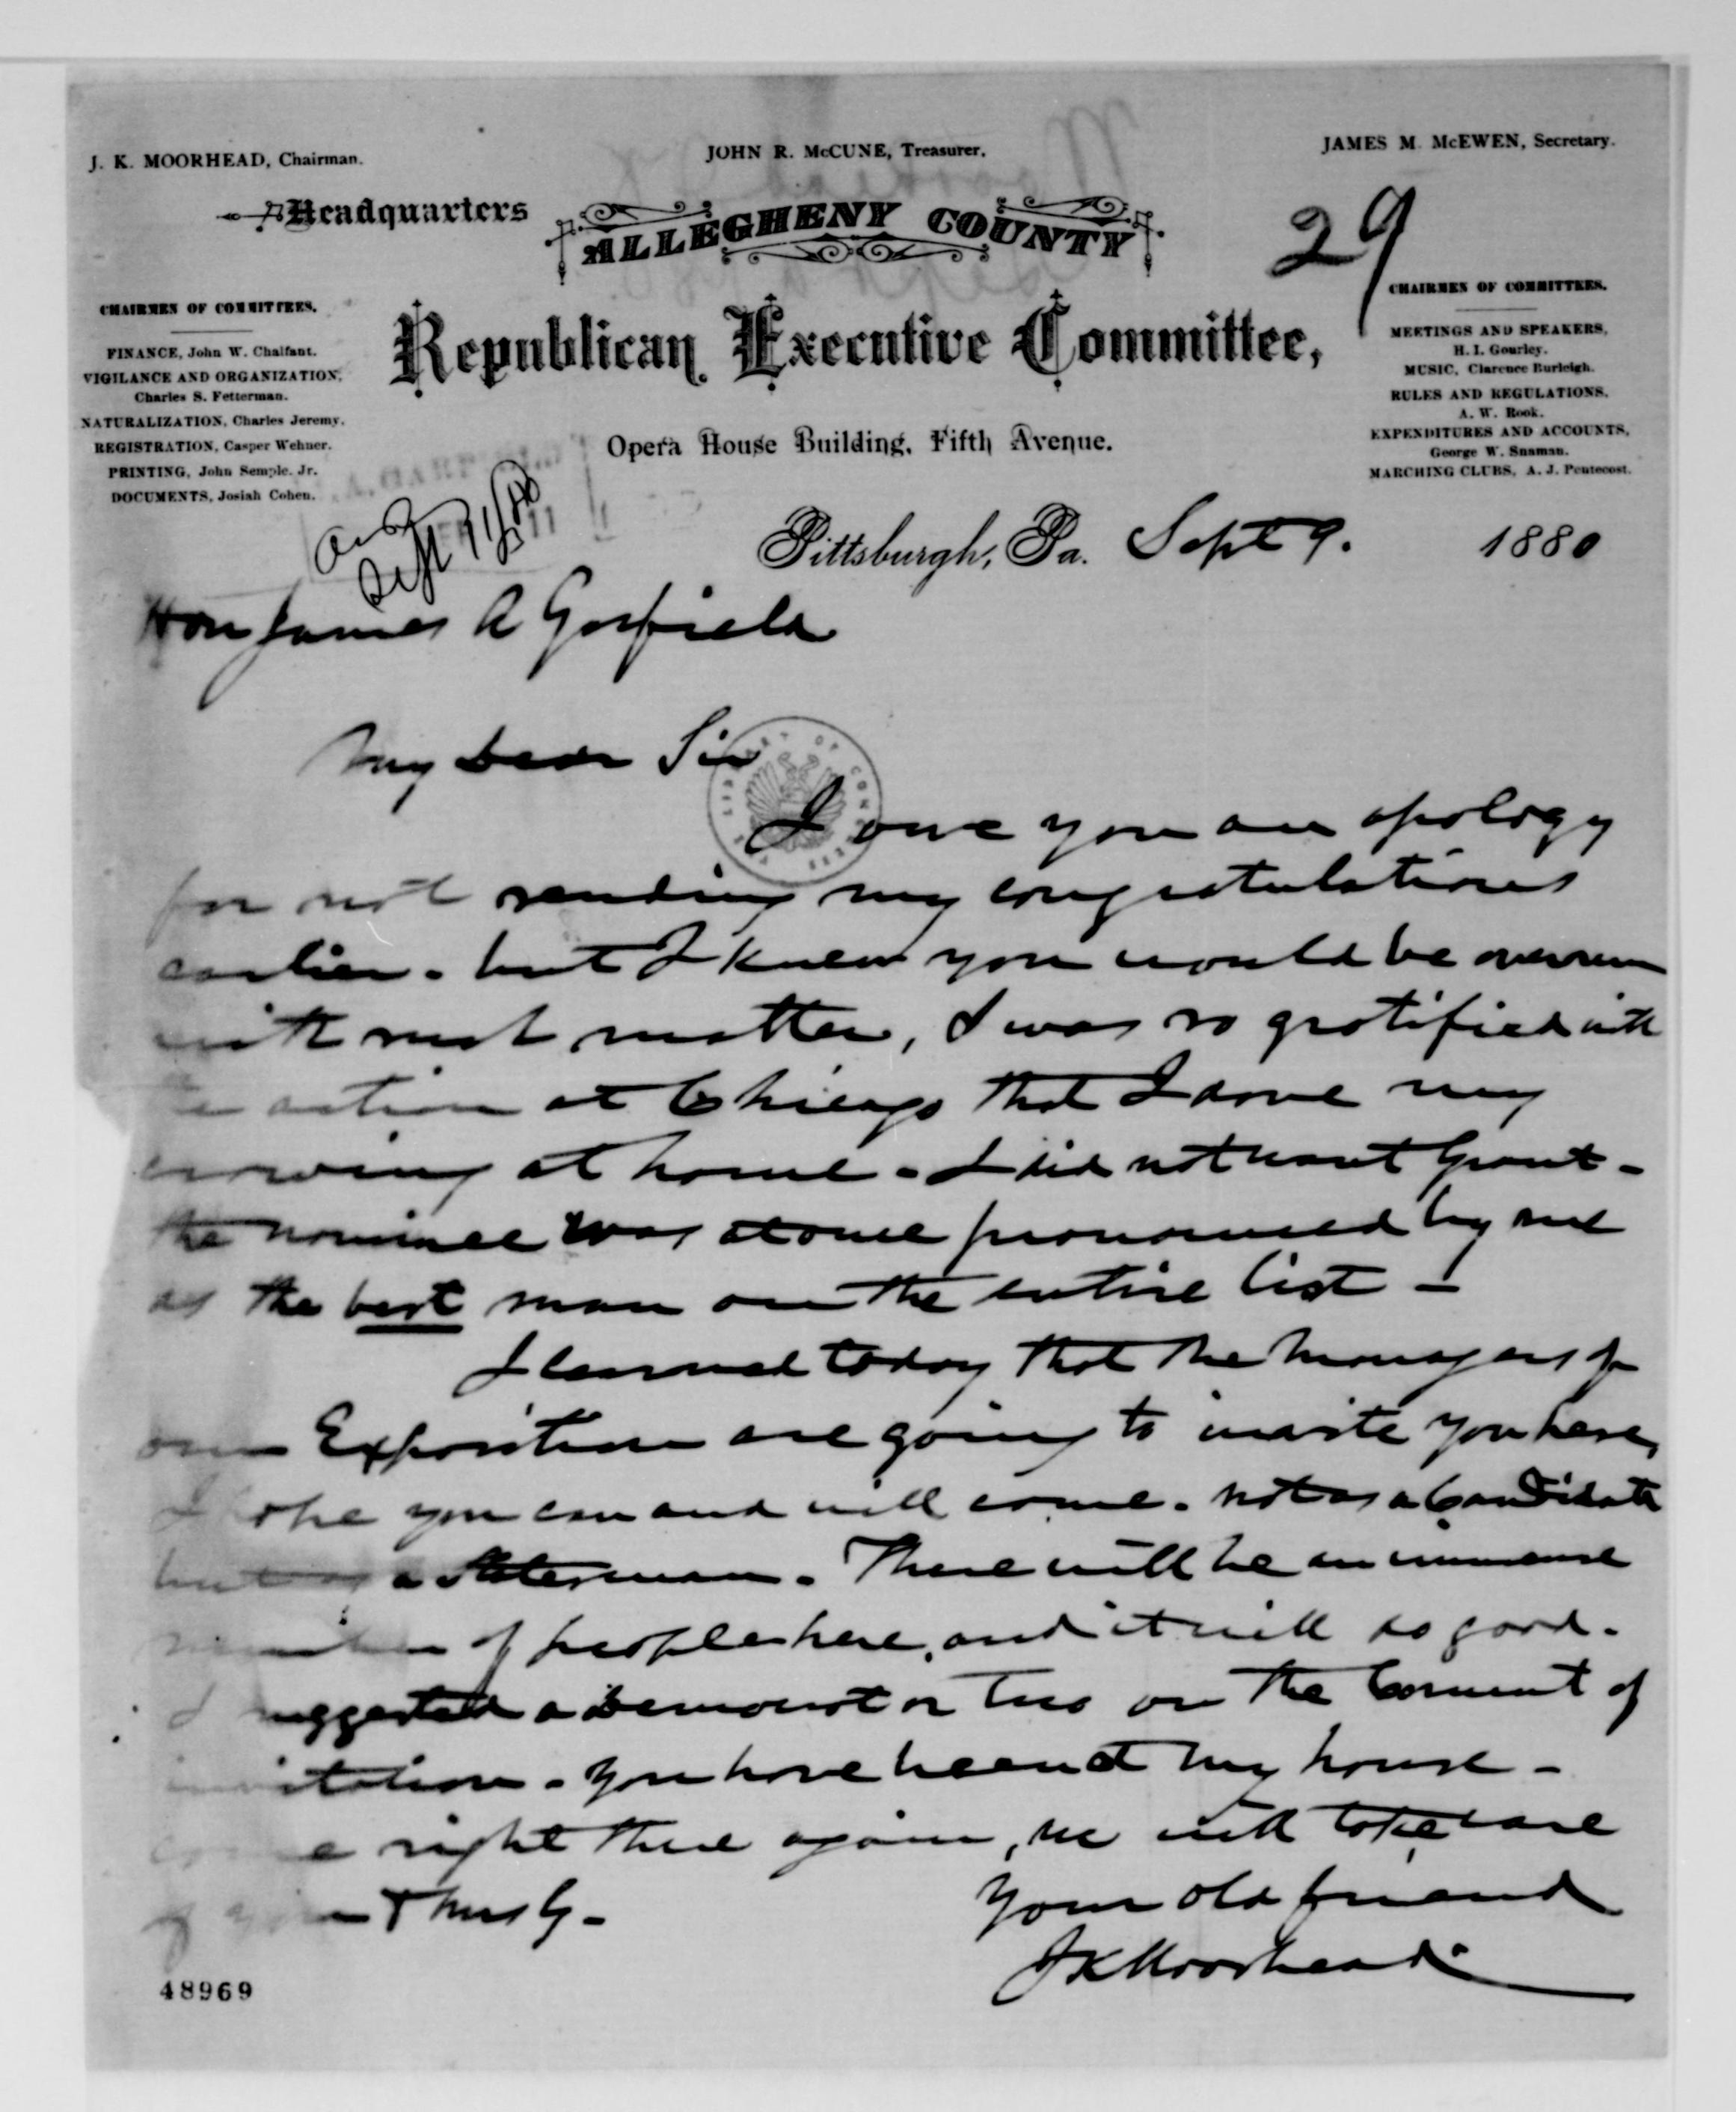 J. K. MOORHEAD, Chairman.
JOHN R. McCUNE, Treasurer.
JAMES M. McEWEN, Secretary.
Headquarters
ALLEGHENY COUNTY
29
Republican Executive Committee,
Opera House Building, Fifth Avenue.
CHAIRMEN OF COMMITTEES.
FINANCE, John W. Chalfant.
VIGILANCE AND ORGANIZATION,
Charles S. Fetterman.
NATURALIZATION, Charles Jeremy.
REGISTRATION, Casper Wehner.
PRINTING, John Semple. Jr.
DOCUMENTS, Josiah Cohen.
CHAIRMEN OF COMMITTEES.
MEETINGS AND SPEAKERS,
H. I. Gourley.
MUSIC, Clarence Burleigh.
RULES AND REGULATIONS,
A. W. Rook.
EXPENDITURES AND ACCOUNTS,
George W. Snaman.
MARCHING CLUBS, A. J. Pentecost.
Ansd
Sept
Pittsburgh, Pa. Sept 9. 1880
Hon James A Garfield
My Dear Sir
I owe you an apology
for not sending my congratulations
earlier. but I knew you would be overrun
with such matter, I was so gratified with
the action at Chicago that I done my
crowing at home. I did not want Grant -
the nominee was at once pronounced by me
as the best man on the entire list -
I learned today that the managers of
our Exposition are going to invite you here,
I hope you can and will come. not as a Candidate
but as a Statesman. There will be an immense
number of people here, and it will do good.
I suggested a Democrat or two on the Comment of
invitation. You have been at my house -
come right there again, we will take care
of you & Mrs G.
Your old friend
J K Moorhead
48969